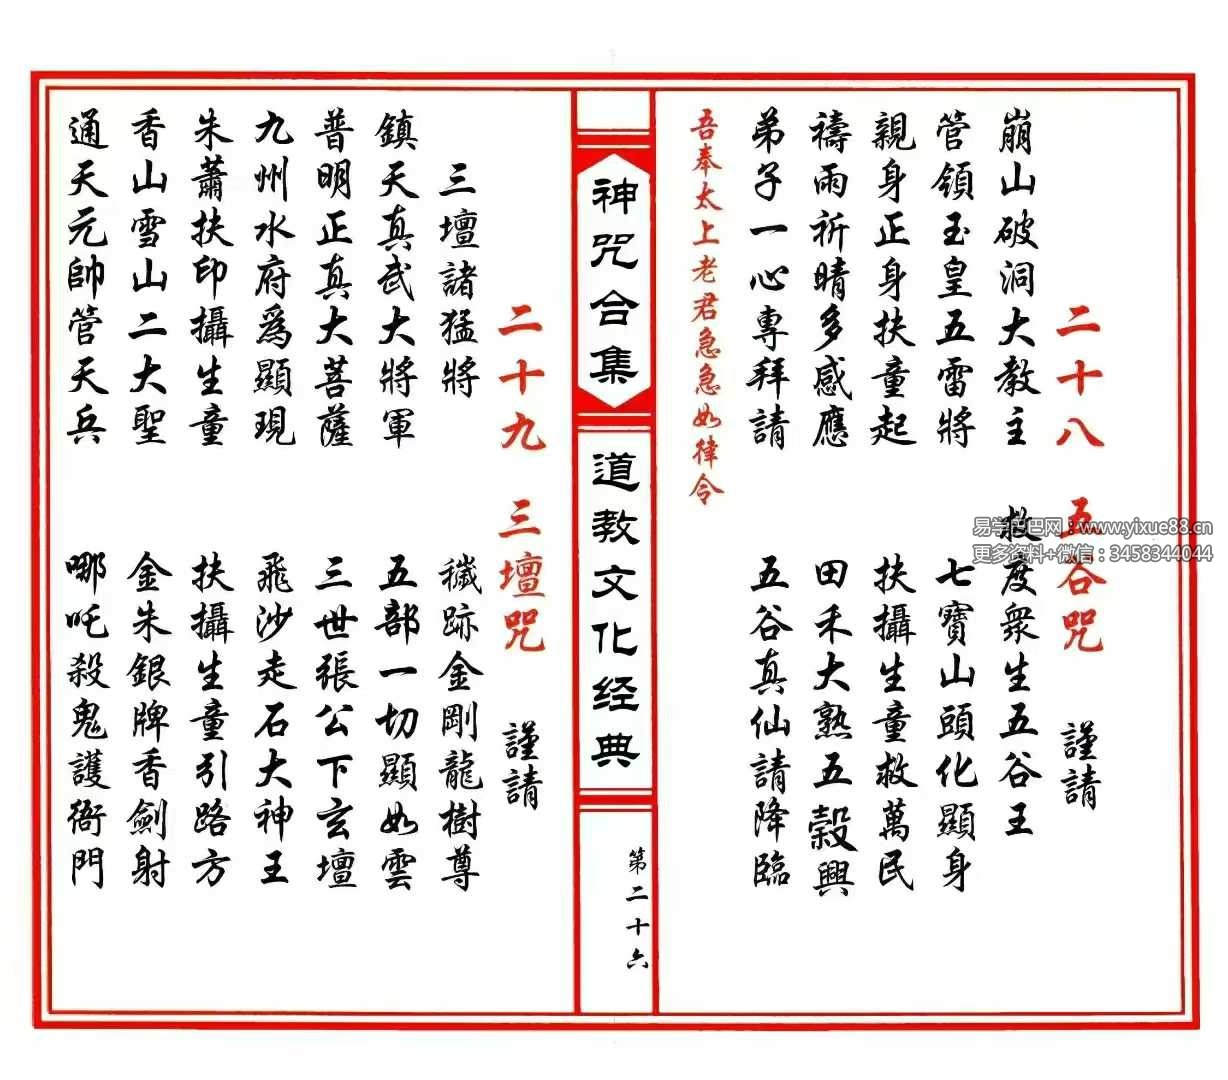 二十八 五谷咒 謹請
崩山破洞大教主 救度衆生五谷王
管領玉皇五雷將 七寶山頭化顯身
親身正身扶童起 扶攝生童救萬民
禱雨祈晴多感應 田禾大熟五穀興
弟子一心專拜請 五谷真仙請降臨
吾奉太上老君急急如律令
神咒合集
道教文化经典
第二十六
二十九 三壇咒 謹請
三壇諸猛將 穢跡金剛龍樹尊
鎮天真武大將軍 五部一切顯如雲
普明正真大菩薩 三世張公下玄壇
九州水府為顯現 飛沙走石大神王
朱蕭扶印攝生童 扶攝生童引路方
香山雪山二大聖 金朱銀牌香劍射
通天元帥管天兵 哪吒殺鬼護衙門
易学巴巴网：www.yixue88.cn
更多资料+微信：3458344044